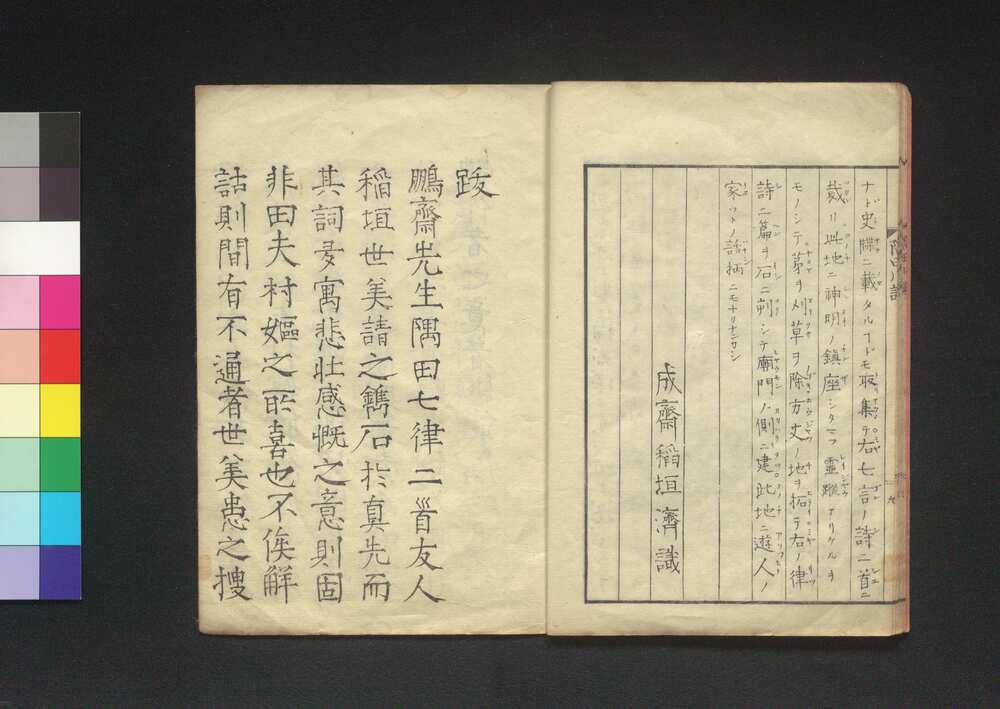 ナド史牒ニ載タルヿドモ取集テ右七言ノ詩二首ニ
裁リ此地ニ神明ノ鎮座シタマフ霊蹤ナリケルヲ
モノシテ茅ヲ刈草ヲ除方丈ノ地ヲ拓テ右ノ律
詩二篇ヲ石ニ刻シテ廟門ノ側ニ建此地ニ遊人ノ
家ツトノ話柄ニモナリナンカシ
成齋稻垣濟識
跋
鵬齋先生隅田七律二首友人
稲垣世美請之鐫石於真先而
其詞多寓悲壮感慨之意則固
非田夫村嫗之所喜也不俟解
詁則間有不通者世美患之捜